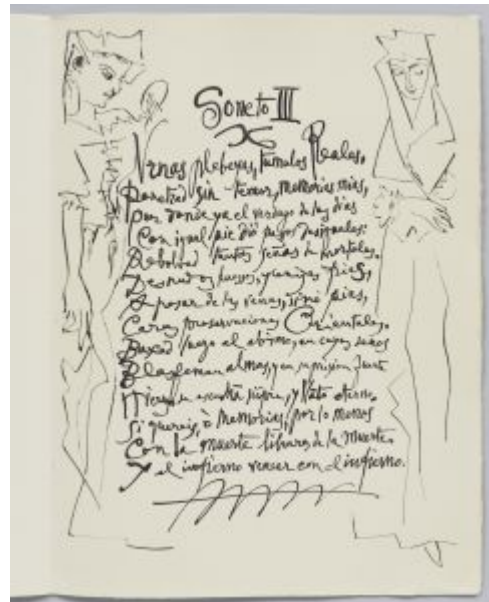 Soneto III
Vrnas plebeyas, tumulos Reales,
Penetrad sin temor, memorias mias,
Por donde ya el verdugo de los dias
Con igual pie dió pasos desiguales:
Rebolved tantas señas de mortales,
Desnudos huesos, y cenizas frias,
A pesar de las vanas, sino pias,
Caras preservaciones Orientales.
Baxad luego al abismo, en cuyos senos
Blasfeman almas, y en su prision fuerte
Hierros se escuchan siempre, y llanto eterno,
Si quereis, ò Memorias, por lo menos
Con la muerte libraros de la Muerte.
Y el infierno vencer con el infierno.